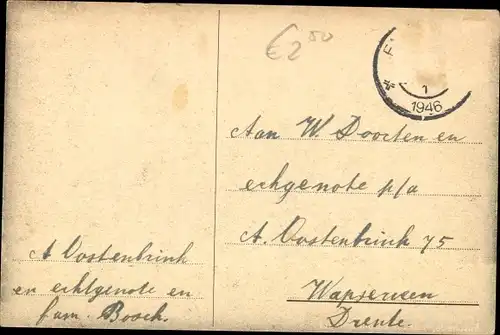 €2 50
1
1946
Aan W. Doorten en
echgenote p/a
A. Oostenbrink 75
Wapserveen
Drente.
A Oostenbrink
en echtgenote en
fam. Bosch.